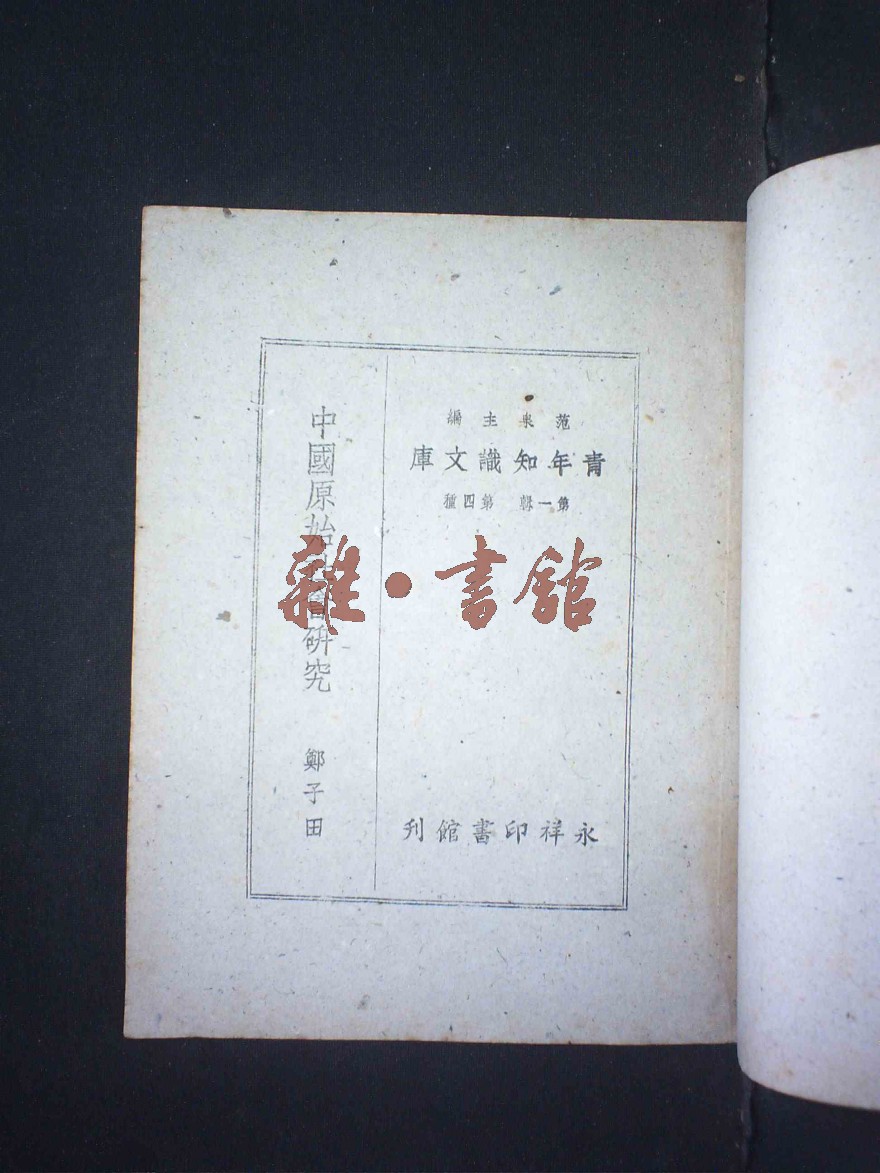 范泉主編
青年知識文庫
第一輯 第四種
中國原始社會研究 鄭子田
永祥印書館刊
雜·書館